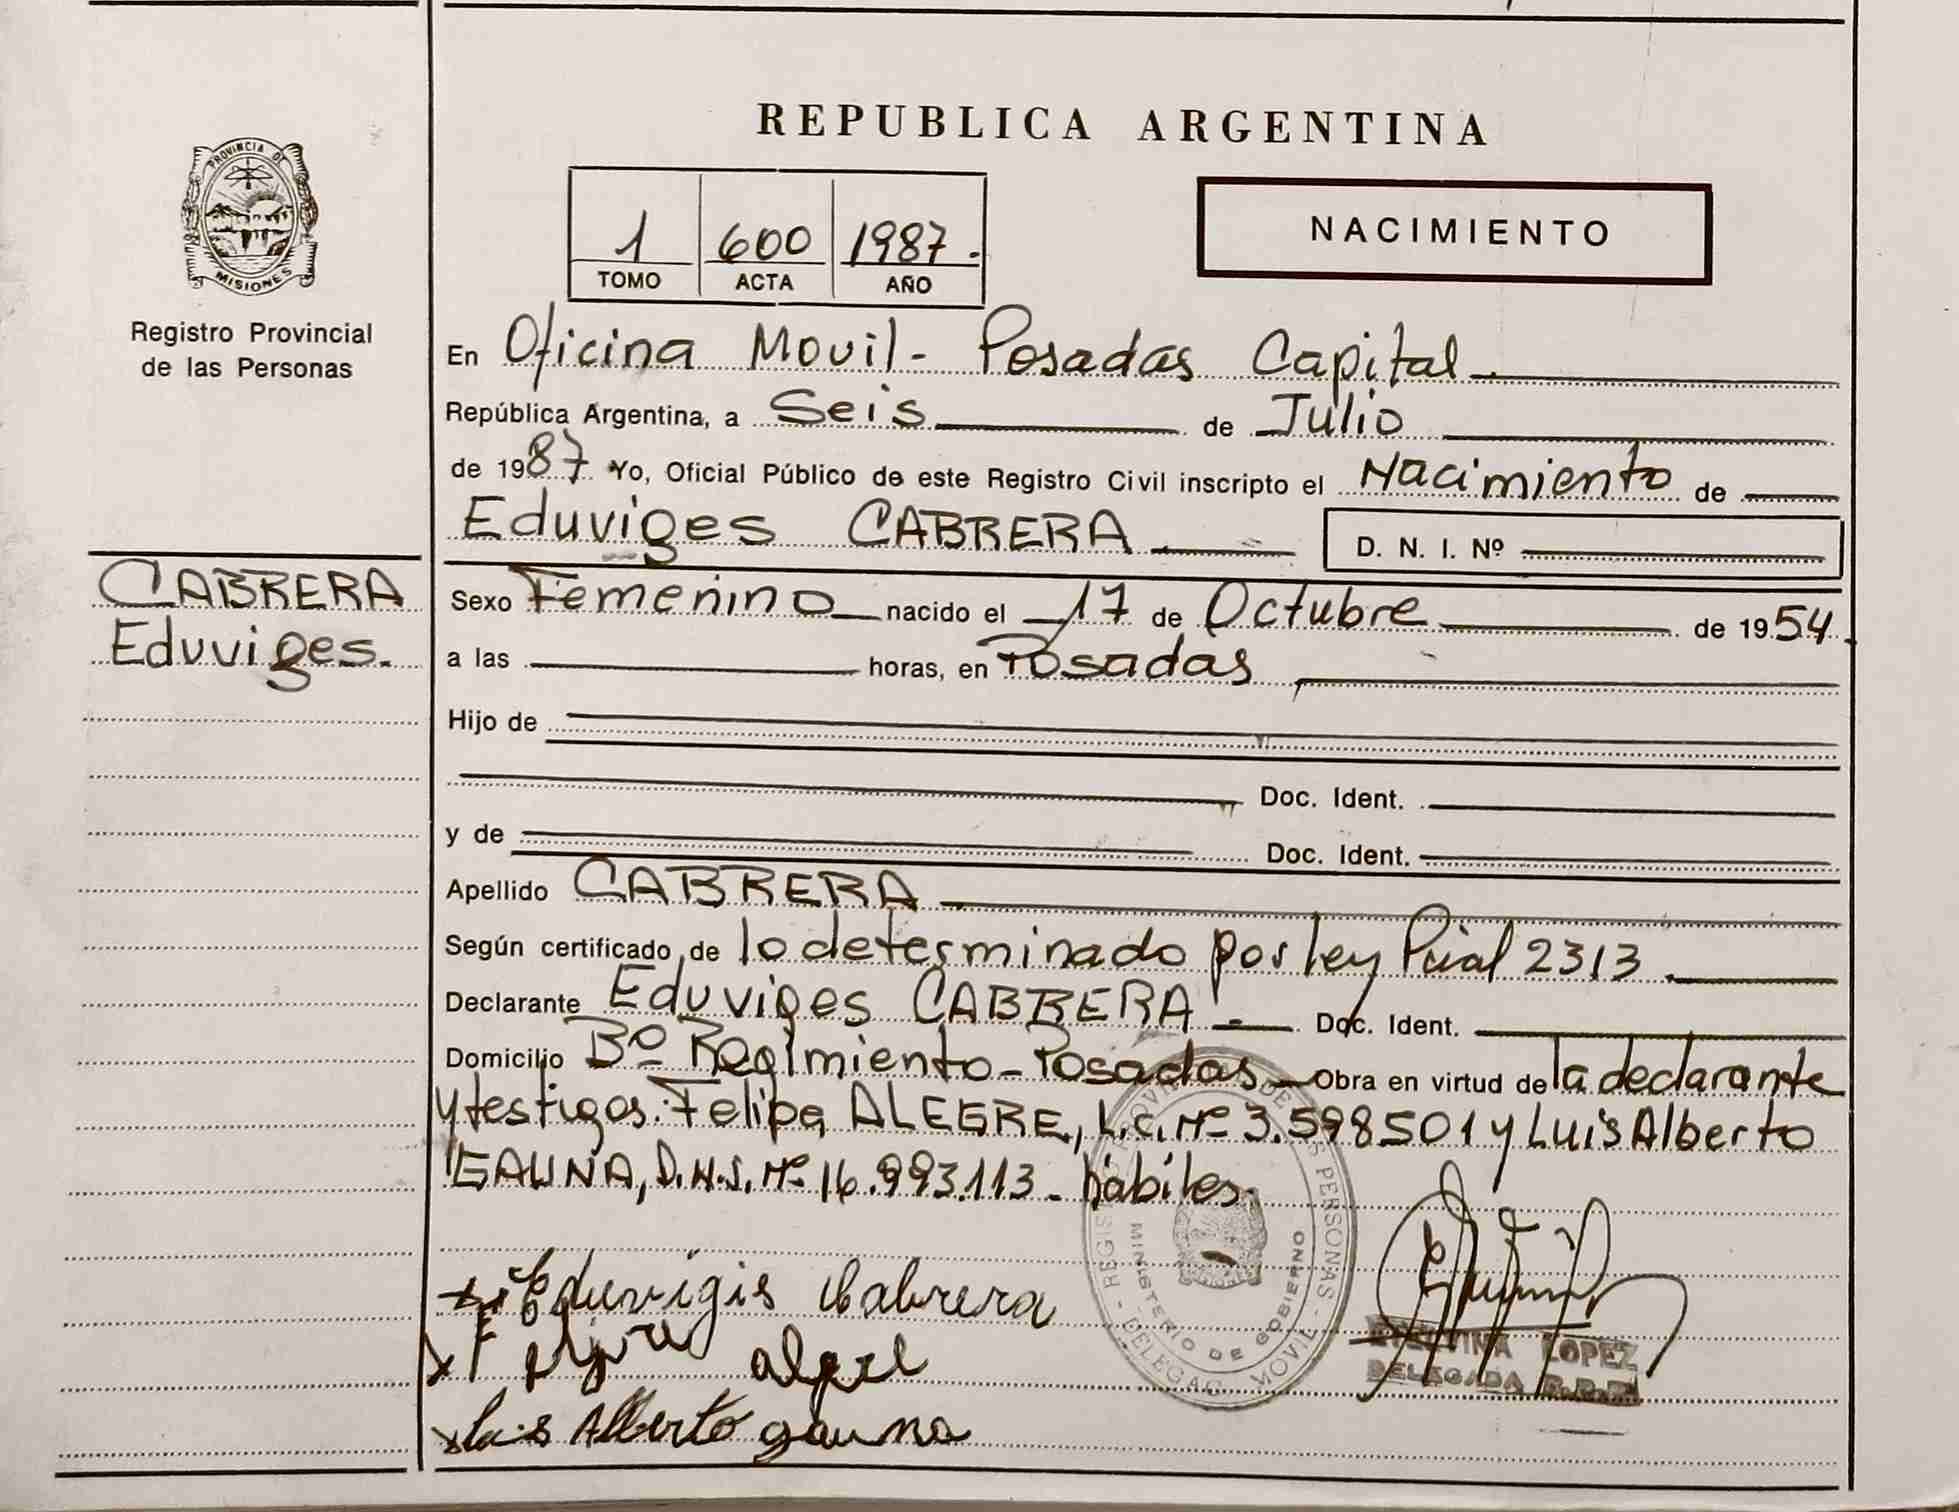 REPUBLICA ARGENTINA
PROVINCIA DE MISIONES
Registro Provincial
de las Personas
1 600 1987.
TOMO ACTA AÑO
NACIMIENTO
En Oficina Movil - Posadas Capital
República Argentina, a Seis de Julio
de 1987. Yo, Oficial Público de este Registro Civil inscripto el Nacimiento de
Eduviges CABRERA D. N. I. Nº
CABRERA
Eduviges.
Sexo Femenino nacido el 17 de Octubre de 1954.
a las horas, en Posadas
Hijo de
Doc. Ident.
y de Doc. Ident.
Apellido CABRERA
Según certificado de lo determinado por ley Pcial 2313.
Declarante Eduviges CABRERA. Doc. Ident.
Domicilio Bº Regimiento - Posadas Obra en virtud de la declarante
y testigos: Felipa ALEGRE, L.C. Nº 3.598501 y Luis Alberto
GAUNA, D.N.I. Nº 16.993.113. hábiles.
REGISTRO PROVINCIAL DE LAS PERSONAS - DELEGAC. MOVIL -
MINISTERIO DE GOBIERNO
Eduvigis Cabrera
LOPEZ
DELEGADA R.P.P.
Luis Alberto gauna